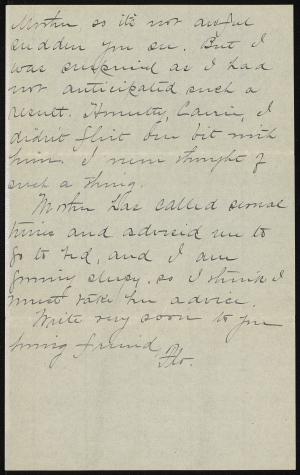 Mother so it's not awful
sudden you see. But I
was surprised as I had
not anticipated such a
result. Honestly, Carrie, I
didn't flirt one bit with
him. I never thought of
such a thing.
Mother has called several
times and advised me to
go to bed, and I am
growing sleepy, so I think I
must take her advice.
Write very soon to your
loving friend,
Flo.